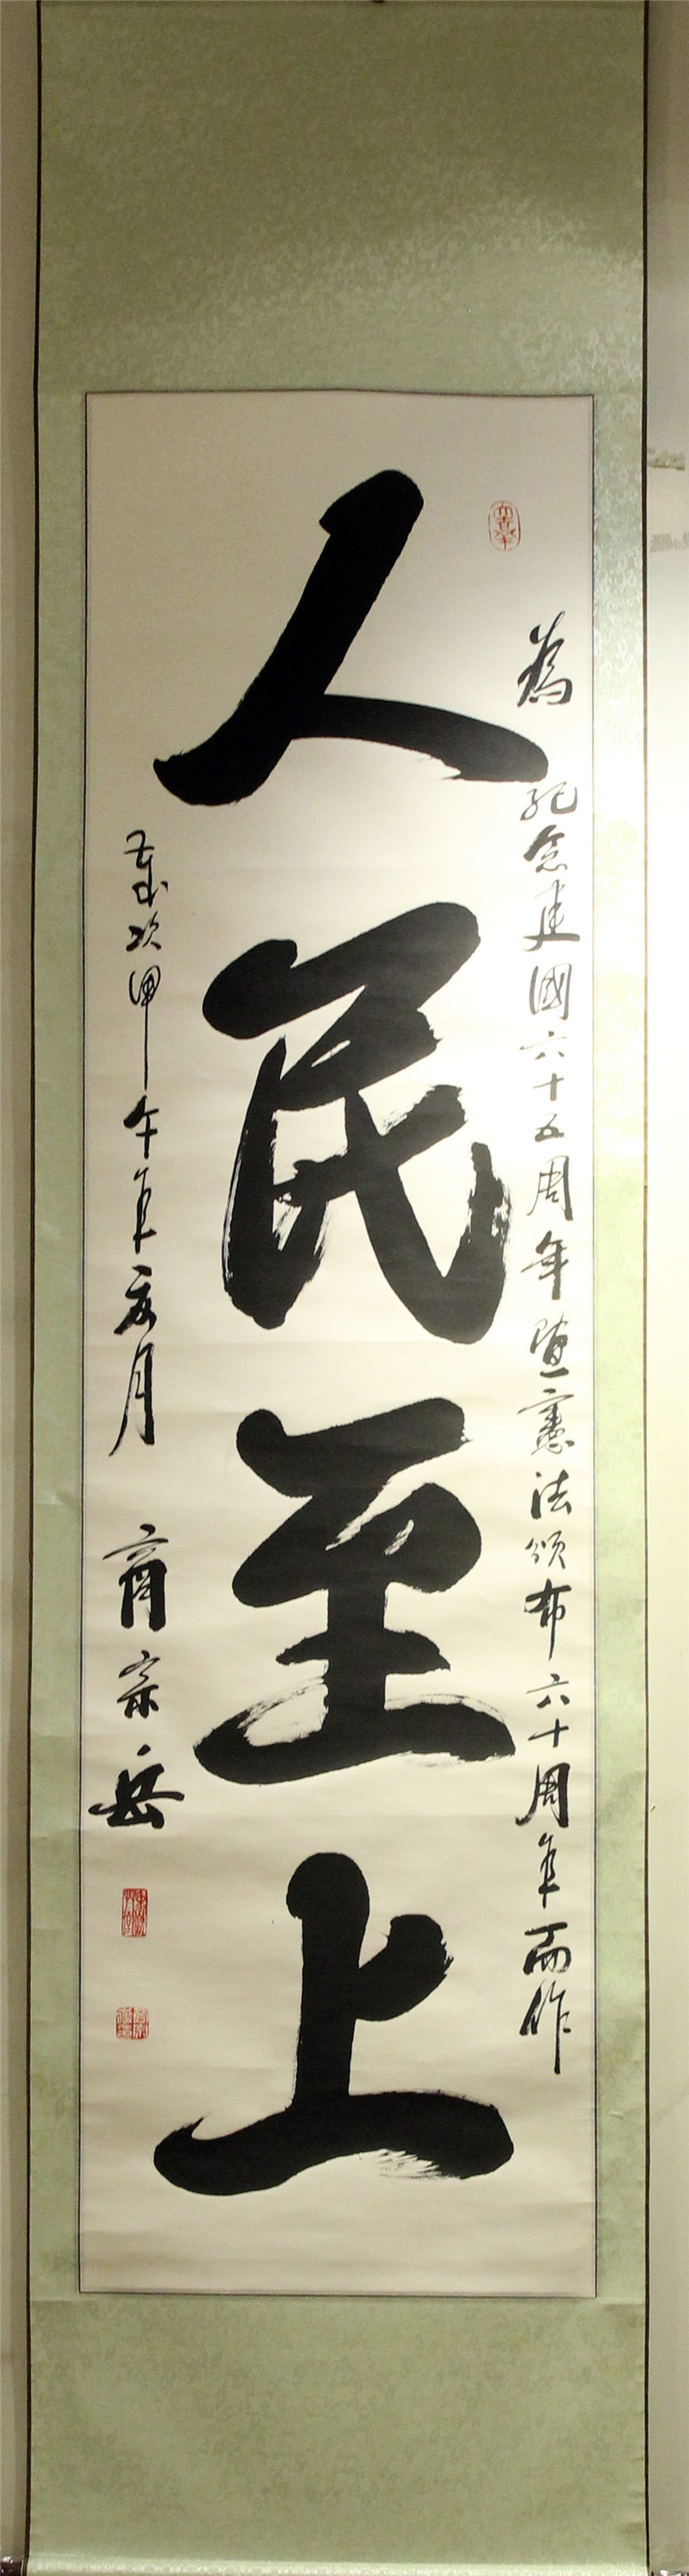 人民至上
為紀念建國六十五周年暨憲法頒布六十周年而作
歲次甲午年夏月
商宗岳